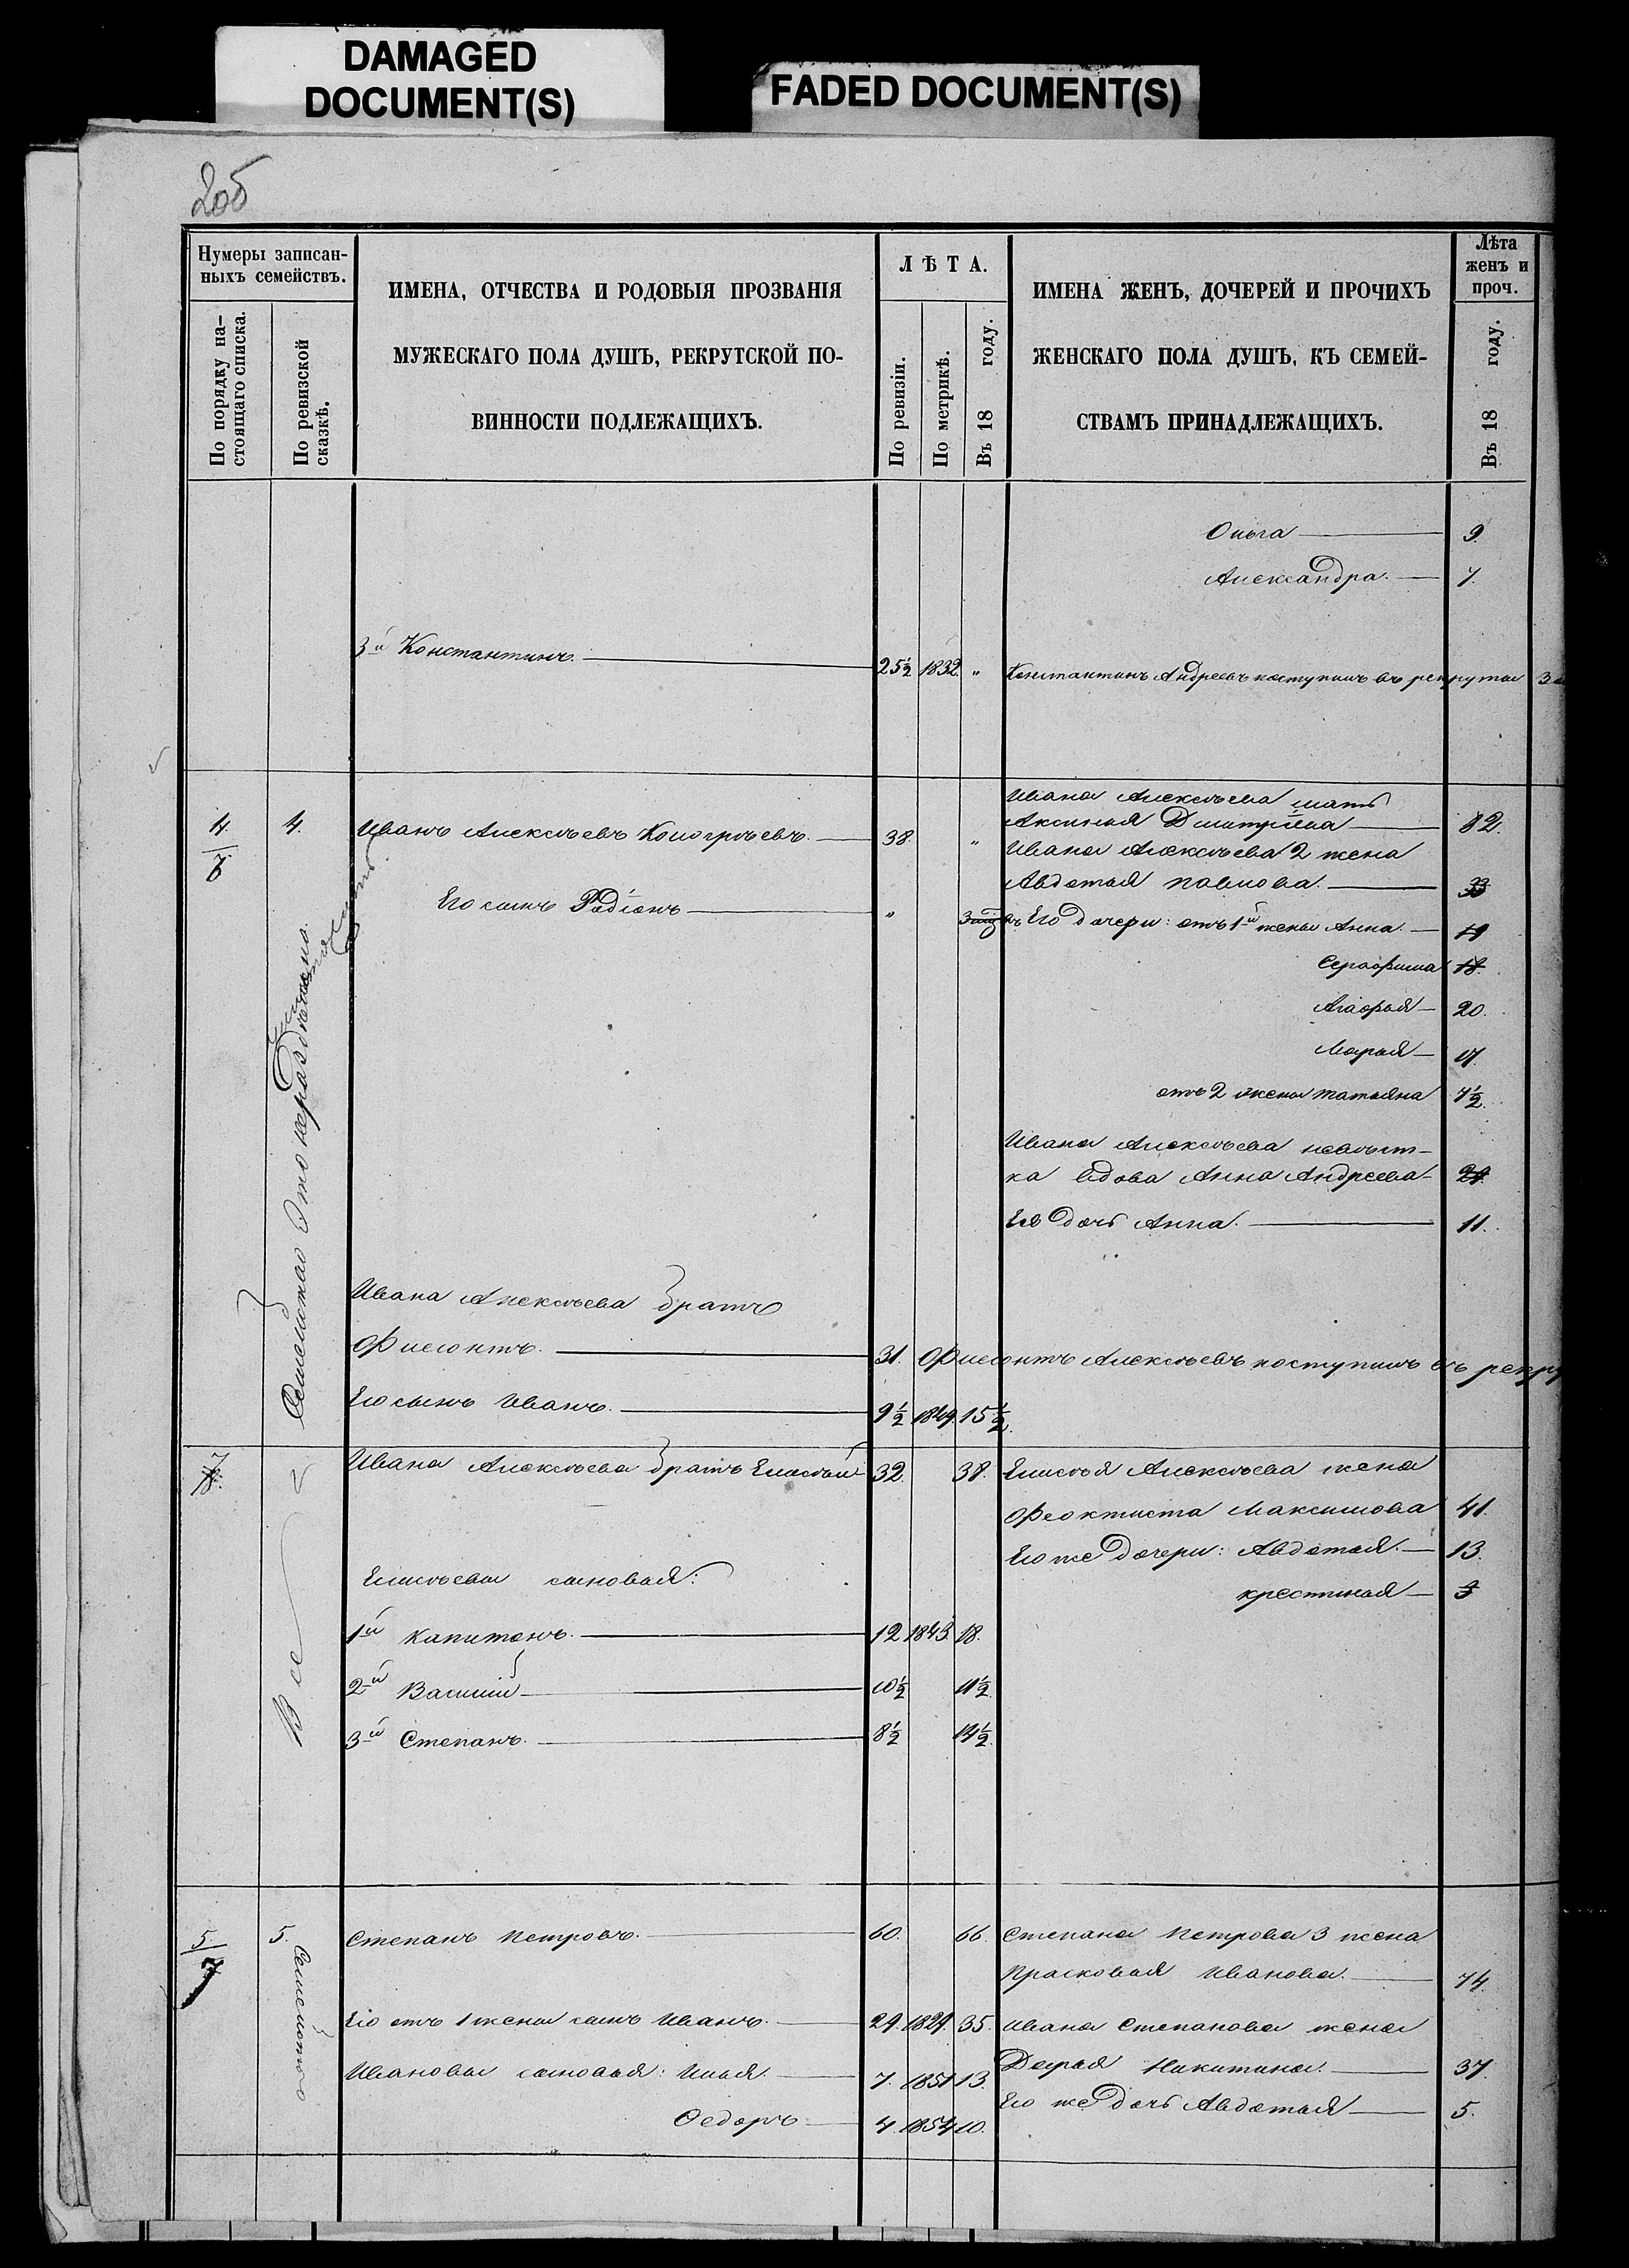 DAMAGED
DOCUMENT(S)
FADED DOCUMENT(S)
205
Нумеры записан-
ныхъ семействъ.
По порядку на-
стоящаго списка.
По ревизской
сказкѣ.
ИМЕНА, ОТЧЕСТВА И РОДОВЫЯ ПРОЗВАНІЯ
МУЖЕСКАГО ПОЛА ДУШЪ, РЕКРУТСКОЙ ПО-
ВИННОСТИ ПОДЛЕЖАЩИХЪ.
ЛѢТА.
По ревизіи.
По метрикѣ.
Въ 18 году.
ИМЕНА ЖЕНЪ, ДОЧЕРЕЙ И ПРОЧИХЪ
ЖЕНСКАГО ПОЛА ДУШЪ, КЪ СЕМЕЙ-
СТВАМЪ ПРИНАДЛЕЖАЩИХЪ.
Лѣта
женъ и
проч.
Въ 18 году.
Ольга 9.
Александра. 7.
3й Константинъ. 25½ 1832. „ Константинъ Андреевъ поступилъ въ рекруты
4. 4. Иванъ Алексѣевъ 38. „
6
Ивана Алексѣева мать
Аксинья Дмитріева 82.
Ивана Алексѣева 2 жена
Авдотья Павлова. 33
Его сынъ Родіонъ „ Его дочери: отъ 1й жены Анна. 19
Серафима 18.
Агафья 20.
Марья 17.
отъ 2 жены Татьяна 7½.
Ивана Алексѣева невѣст-
ка вдова Анна Андреева 29.
Ея дочь Анна. 11.
Семейство это нераздѣльно.
Ивана Алексѣева братъ
Филонтъ. 31. Филонтъ Алексѣевъ поступилъ въ рекру
Его сынъ Иванъ. 9½ 1849. 15½.
7
8.
Ивана Алексѣева братъ Елисѣй 32. 38. Елисѣя Алексѣева жена
Феоктиста Максимова 41.
Его же дочери: Авдотья. 13.
крестинья 3
Елисѣевы сыновья:
1й Капитонъ. 12 1843. 18.
2й Василій 10½ 11½
3й Степанъ. 8½ 14½.
5. 5. Степанъ Петровъ. 60. 66. Степана Петрова 3 жена
7
Прасковья Иванова. 74.
Семейство
Его отъ 1 жены сынъ Иванъ. 29. 1829. 35. Ивана Степанова жена
Дарья Никитина. 37.
Ивановы сыновья: Илья. 7. 1851 13.
Его же дочь Авдотья 5.
Федоръ 4. 1854 10.